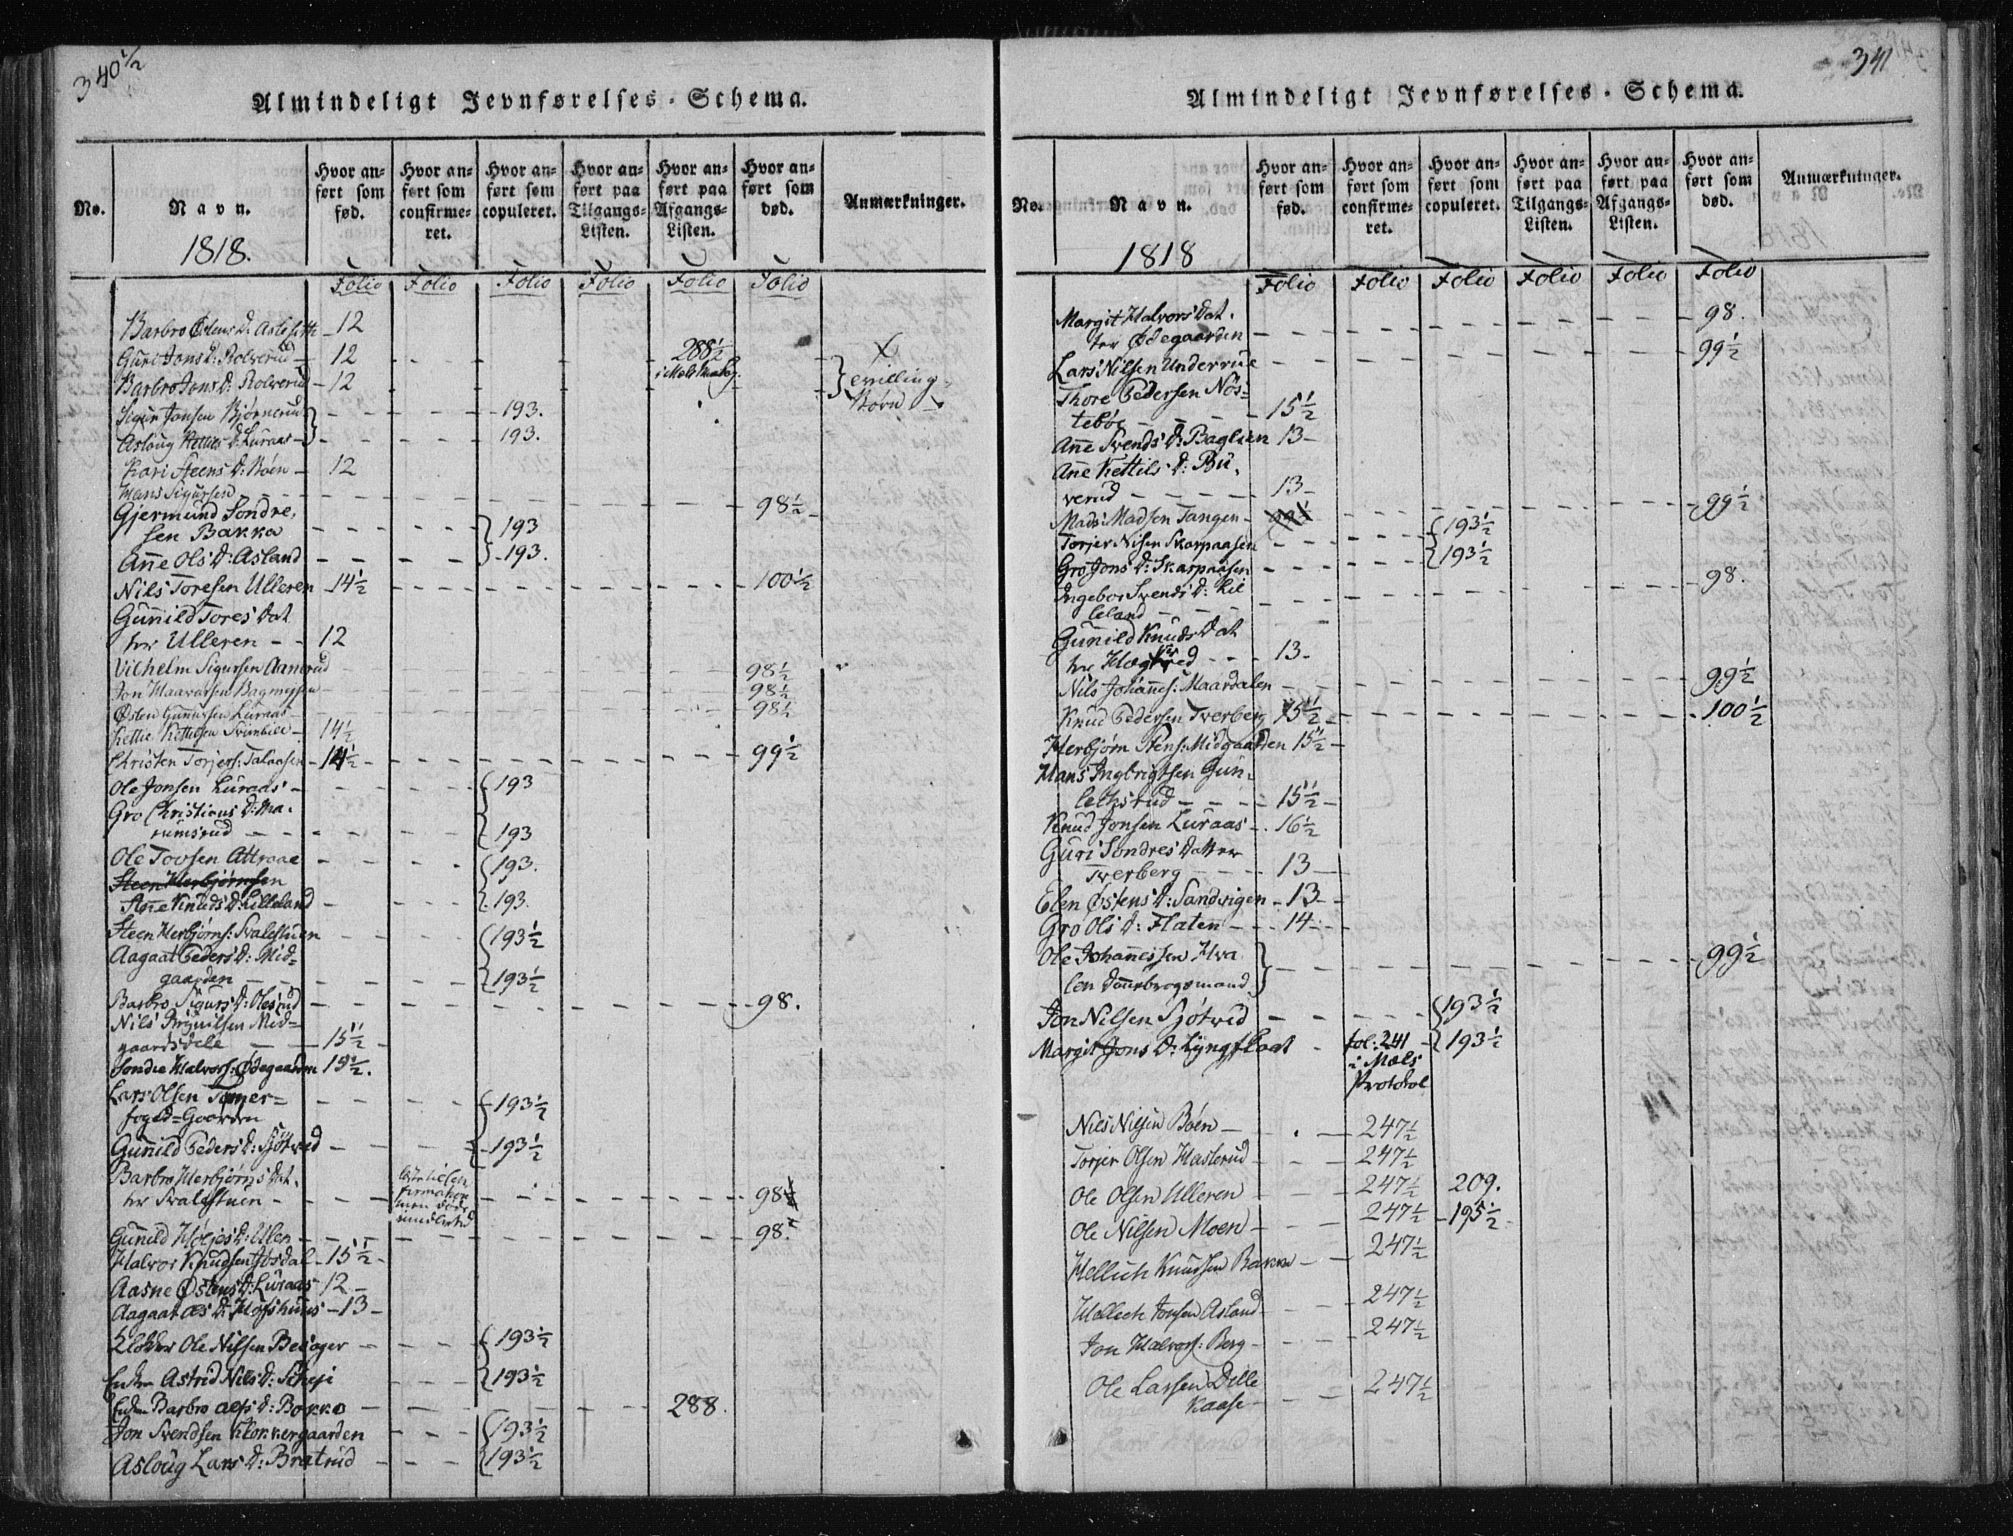 340 1/2
Almindeligt Jevnførelses-Schema.
No.
Navn.
1818.
Hvor anført som fød.
Hvor anført som confirmeret.
Hvor anført som copuleret.
Hvor anført paa Tilgangs-Listen.
Hvor anført paa Afgangs-Listen.
Hvor anført som død.
Anmærkninger.
Folio Folio Folio Folio Folio Folio
Barbro Østens D: 12
Guri Jons D: Rolverud 12 288 1/2
Barbro Jons D: Rolverud 12
Sigur Jonsen Bjørnerud 193.
Aslöug Kettils D: Luraas 193.
Kari Steens D: Böen 12
Hans Sigursen
Gjermund Sondre- 98 1/2
sen Bakka 193
Anne Ols D: Asland 193.
Nils Toresen Ulleren 14 1/2 100 1/2
Gunild Tores Dat
ter Ulleren 12
Vilhelm Sigursen Aamrud 98 1/2
Jon Haavarsen 98 1/2
Østen Gunursen Luraas 98 1/2
Kettil Kettilsen 14 1/2
Christen Torjers: Talaasen 14 1/2 99 1/2
Ole Jonsen Luraas 193
Gro Christians D: Ma-
rumsrud 193
Ole Tovsen Attraae 193.
Steen Herbjørnsen
Anne Knuds D: Lilleland 193.
Steen Herbjørns: Svalestuen 193 1/2
Aagaat Peders D: Mid=
gaarden 193 1/2
Barbro Sigurs D: Olesrud 98.
Nils Brynilsen Mid=
gaardsdele 15 1/2
Sondre Halvors: Ødegaarden 15 1/2.
Lars Olsen Tømer=
foged=Gaarden 193 1/2
Gunild Peders D: Sjötved 193 1/2
Barbro Herbjørns Dat.
ter Svalestuen 98 1/2
Gunild Høljes D: Ulen 98.
Halvor Knudsen Jösdal 15 1/2
Aasne Østens D: Luraas 12
Aagaat D: Hofshuus 13
Klokker Ole Nilsen Besager 193 1/2
Astrid Nils D: 193 1/2
Barbro D: Bakka 288.
Jon Svendsen Klokkergaarden 193 1/2
Aslöug Lars D: Bratrud 193 1/2
341
Almindeligt Jevnførelses-Schema.
No.
Navn.
1818
Hvor anført som fød.
Hvor anført som confirmeret.
Hvor anført som copuleret.
Hvor anført paa Tilgangs-Listen.
Hvor anført paa Afgangs-Listen.
Hvor anført som død.
Anmærkninger.
Folio Folio Folio Folio Folio Folio
Margit Halvors Dat. 98.
ter Ødegaarden
Lars Nilsen Underrue 99 1/2
Thore Pedersen Nös=
teböe 15 1/2
Anne Svends D: Baglien 13
Ane Kettils D: Bu-
verud 13
Mads Madsen Tangen 99 1/2
Torjer Nilsen Skarpaasen 193 1/2
Gro Jons D: Skarpaasen 193 1/2
Ingebor Svends D: Lil 98.
leland
Gunild Knuds Dat
ter 13
Nils Johannes: Maardalen 99 1/2
Knud Pedersen Tverberg 15 1/2 100 1/2
Herbjørn Stens: Midgaarden 15 1/2
Hans Ingbrigtsen Gun-
lethsrud 15 1/2
Knud Jonsen Luraas 16 1/2
Guri Sondres Datter
Tverberg 13
Elen Østens D: Sandvigen 13
Gro Ols D: Flaten 14
Ole Johannessen Hva
len Dannebrogsmand 99 1/2
Jon Nilsen Sjötved 193 1/2
Margit Jons D: Lyngfloat fol: 241 193 1/2
i Mæls
Protokol
Nils Nilsen Böen 247 1/2
Torjer Olsen Haslerud 247 1/2
Ole Olsen Ulleren 247 1/2 209.
Ole Nilsen Moen 247 1/2 195 1/2
Hellich Knudsen Bakka 247 1/2
Hellich Jonsen Asland 247 1/2
Jon Halvors: Berg 247 1/2
Ole Larsen Dille
kaase 247 1/2